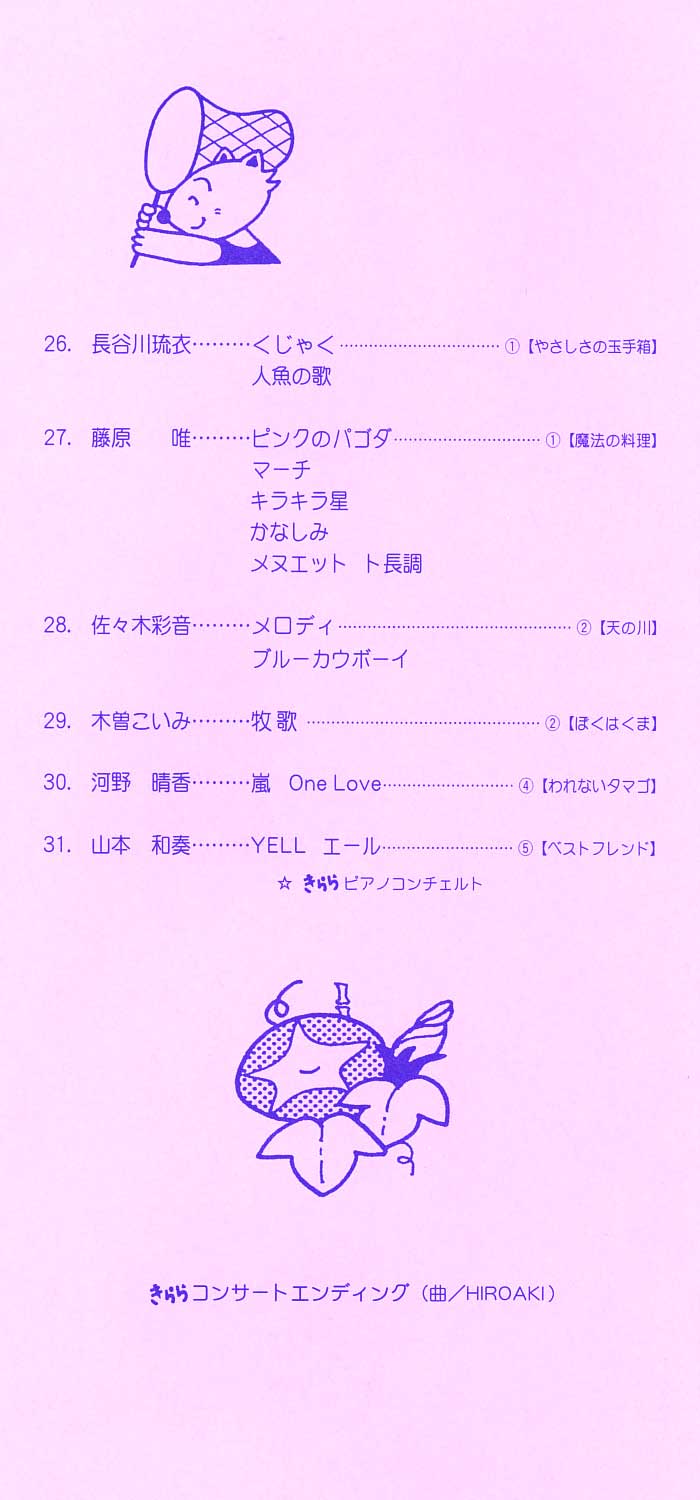 26. 長谷川琉衣………くじゃく…………………………… ①【やさしさの玉手箱】
人魚の歌
27. 藤原　　唯………ピンクのパゴダ………………………… ①【魔法の料理】
マーチ
キラキラ星
かなしみ
メヌエット　ト長調
28. 佐々木彩音………メロディ………………………………………… ②【天の川】
ブルーカウボーイ
29. 木曽こいみ………牧歌………………………………………… ②【ぼくはくま】
30. 河野　晴香………嵐　One Love……………………… ④【われないタマゴ】
31. 山本　和奏………YELL　エール……………………… ⑤【ベストフレンド】
☆ きらら ピアノコンチェルト
きららコンサートエンディング（曲／HIROAKI）